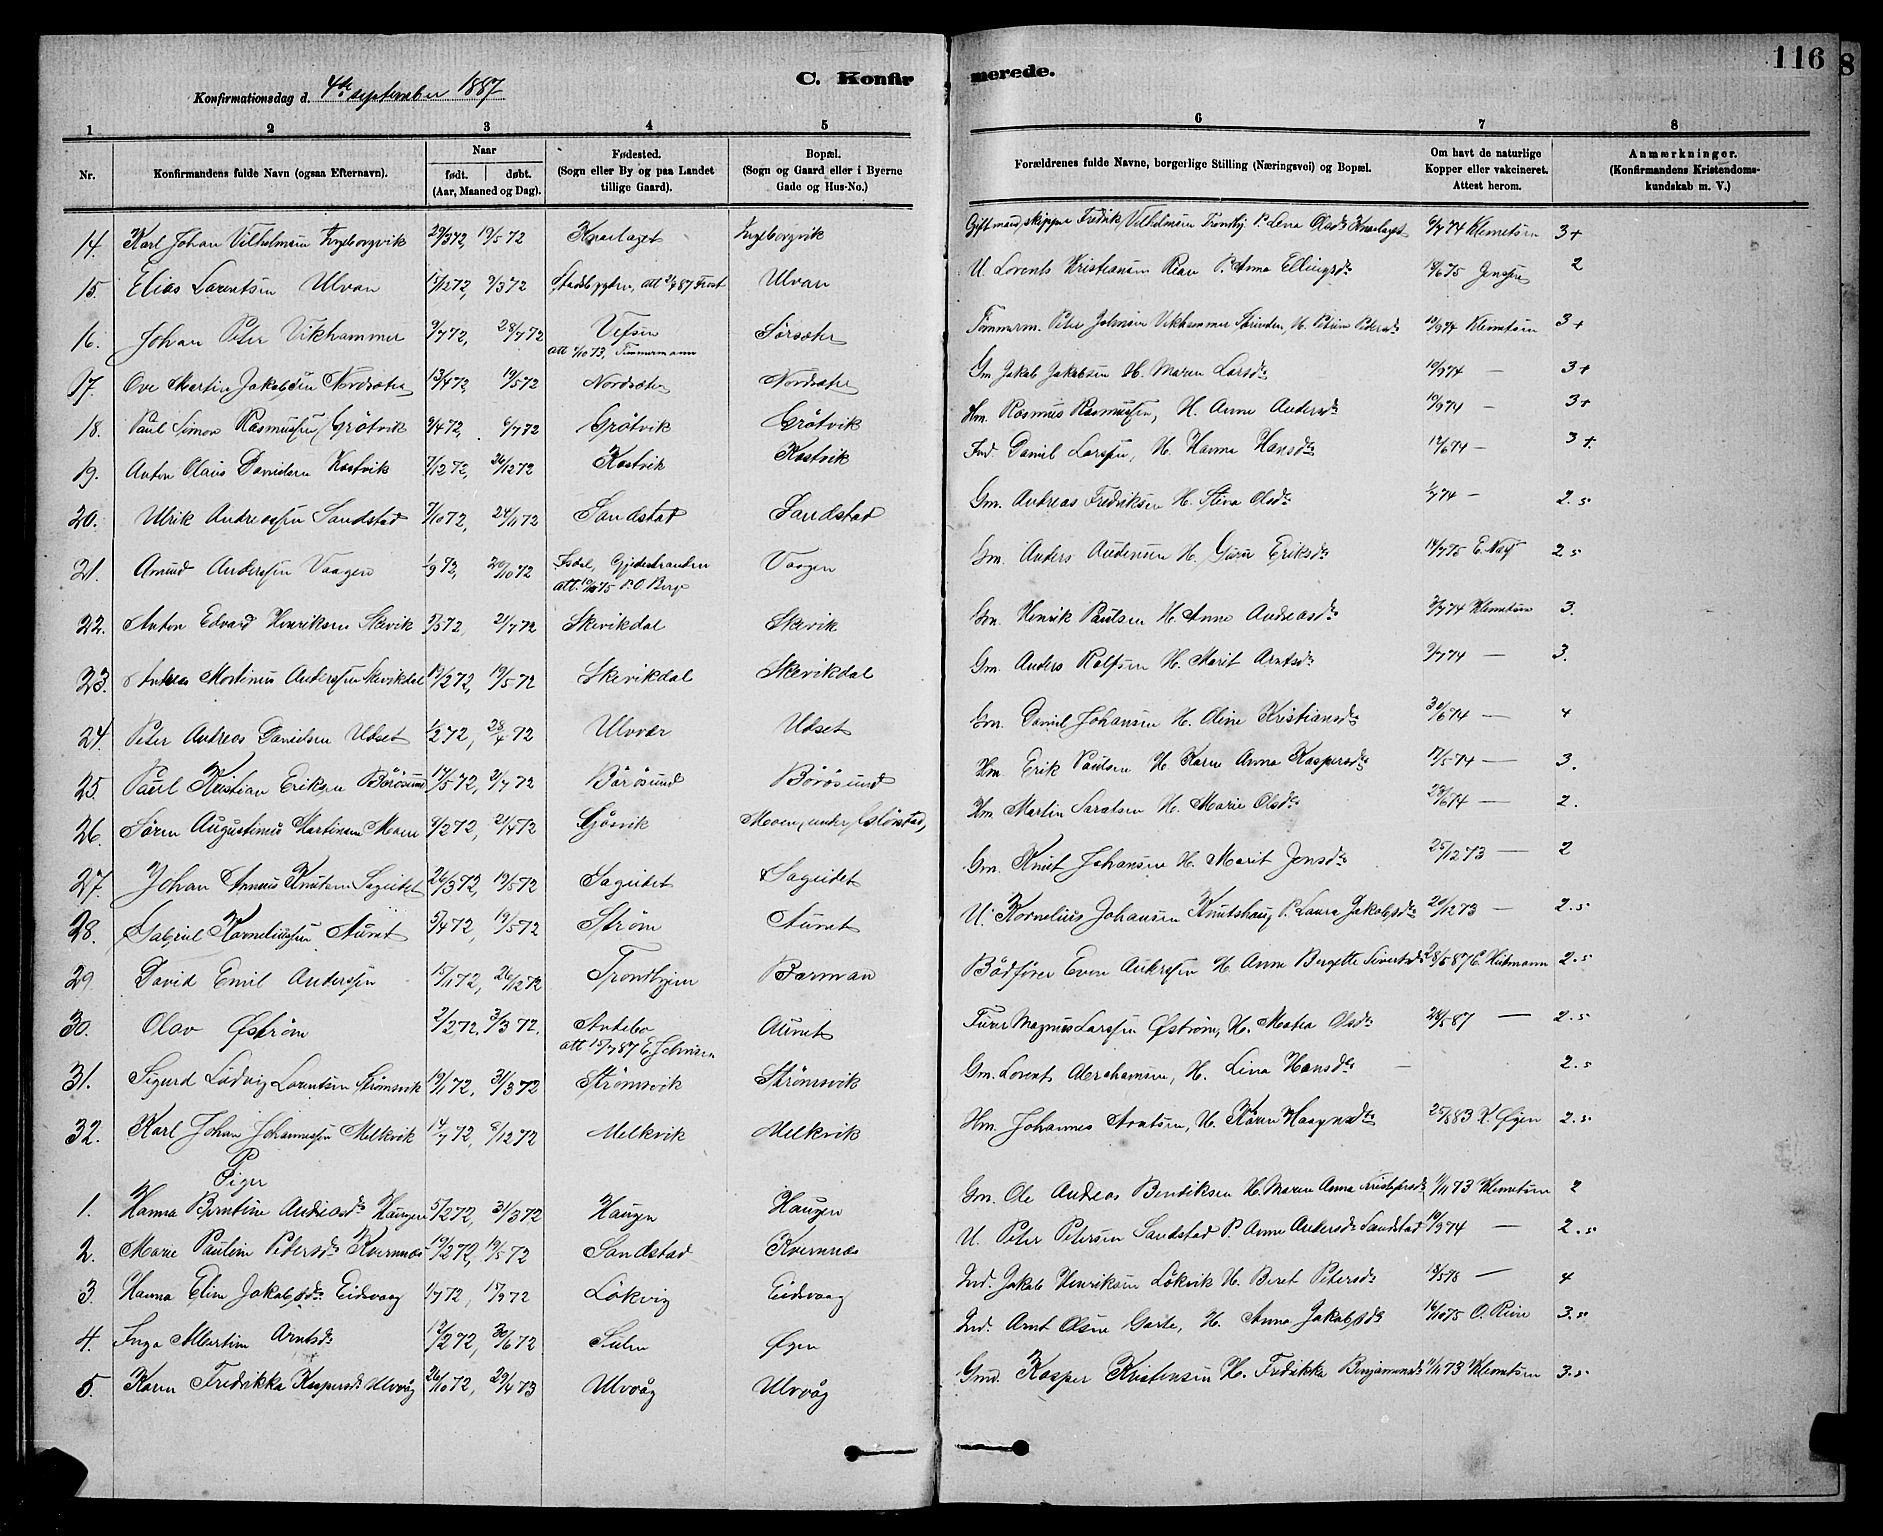 116
C. Konfirmerede.
Konfirmationsdag d. 4de september 1887
1 2 3 4 5 6 7 8
Nr. Konfirmandens fulde Navn (ogsaa Efternavn). Naar født. døbt. (Aar, Maaned og Dag). Fødested. (Sogn eller By og paa Landet tillige Gaard). Bopæl. (Sogn og Gaard eller i Byerne Gade og Hus-No.) Forældrenes fulde Navne, borgerlige Stilling (Næringsvei) og Bopæl. Om havt de naturlige Kopper eller vakcineret. Attest herom. Anmærkninger. (Konfirmandens Kristendomskundskab m. V.)
14. Karl Johan Vilhelmsen Ingeborgvik 29/3 72, 19/5 72 Knarlaget Ingeborgvik Gift mand, skipper Fredrik Vilhelmsen P. Lena Olsdr Knarlaget 6/7 74 Klemetsen 3+
15. Elias Lorentsen Ulvan 9/3 72 Stadsbygden, Ulvan U. Lorents Kristiansen P. Anna Ellingsdr 18/6 75 Jenssen 2
16. Johan Peter Vikhammer 9/7 72, 28/7 72 Vefsen Sørsæter Tømmerm. Peter Johnsen Vikhammer Strinden, H. Petrine Pedersdr 10/9 74 Klemetsen 3+
att Tømmermann
17. Ove Martin Jakobsen Nordsæter 13/4 72, 19/5 72 Nordsæter Nordsæter Gm Jakob Jakobsen H. Maren Larsdr 10/9 74 — 3+
18. Paul Simon Rasmussen Grøtvik 9/4 72, 6/7 72 Grøtvik Grøtvik Hm. Rasmus Rasmussen, H. Anne Andersdr 10/9 74 — 3+
19. Anton Olaus Danielsen Kostvik 7/12 72, 26/12 72 Kostvik Kostvik Ind. Daniel Larssen, H. Hanna Hansdr 12/6 74 — 3+
20. Ulrik Andreassen Sandstad 7/10 72, 24/11 72 Sandstad Sandstad Gm. Andreas Fredriksen H. Olsdr 74 — 2.5
21. Amund Anderssen Vaagen 1/9 72, 20/10 72 Vaagen Gm. Anders H. Guru Eriksdr 14/7 75 2.5
22. Anton Edvard Henriksen Skevik 72, 21/7 72 Skevikdal Skevik Gm. Henrik Paulsen H. Anne Andreasdr 74 Klemetsen 3.
23. Andreas Martinus Anderssen Skevikdal 19/2 72, 19/5 72 Skevikdal Skevikdal Gm. Anders Rolfsen H. Marit Arntsdr 74 — 3.
24. Peter Andreas Danielsen Udset 1/2 72, 28/4 72 Ulvær Udset Gm. Daniel Johansen H. Oline Kristiansdr 30/6 74 — 4
25. Paul Kristian Eriksen Börösund 17/5 72, 21/7 72 Börösund Börösund Hm. Erik Paulsen H. Karen Anna Kaspersdr 17/5 74 — 3.
26. Sören Augustinus Martinsen Moen 9/2 72, 21/4 72 Gjösvik Moen, under Hm Martin H. Marie Olsdr 23/6 74 — 2.
27. Johan Knutsen Sageidet 26/3 72, 19/5 72 Sageidet Sageidet Gm. Knut Johansen H. Marit Jensdr 25/12 73 — 2
28. Gabriel Korneliussen Aunet 5/4 72, 19/5 72 Strøm Aunet U. Kornelius Johansen Knutshaug P. Laura Jakobsdr 20/12 73 — 2.5
29 David Emil Anderssen 15/11 72, 26/12 72 Trondhjem Barman Bödfører Even Anderssen H. Anne Bergette Sivertsdr 28/5 87 2.5
30. Olav Østrøm 2/2 72, 31/3 72. Aunet Magnus Larssen Østrøm, H. Matea Olsdr 28/5 87 — 2.5
att 15/7 87 E. Johnsen
31. Sigurd Ludvig Lorentsen Strømsvik 19/1 72, 31/3 72 Strømsvik Strømsvik Gm. Lorents Abrahamsen, H. Lina Hansdr — 2.5
32. Karl Johan Johannessen Melkvik 14/7 72, 8/12 72 Melkvik Melkvik Hm. Johannes Arntsen, H. Karen Haagensdr 25/8 83 K. Øyen 2.5
Piger
1. Hanna Berntine Andreasdr Haugen 5/2 72, 31/3 72 Haugen Haugen Gm. Ole Andreas Bendiksen H. Maren Anna Kristofersdr 9/11 73 Klemetsen 2
2. Marie Pauline Petersdr Kvernnæs 19/2 72, 19/5 72 Sandstad Kvernnæs U. Peter Petersen Sandstad P. Anne Andersdr Sandstad 10/9 74 — 2.5
3. Hanna Eline Jakobsdr Eidsvaag 72, 15/9 72 Lökvig Eidsvaag Ind. Jakob Henriksen Lökvik H. Beret Petersdr — 4
4. Inga Albertine Arntsdr 19/2 72, 30/6 72 Øyen Ind. Arnt Olsen H. Anna Jakobsdr 16/10 75 3.5
5. Karen Fredrikka Kaspersdr Ulvvåg 26/10 72, 29/4 73 Ulvvåg Ulvvåg Gmd. Kasper Kristensen H. Fredrikka Benjaminsdr 73 Klemetsen 3.5